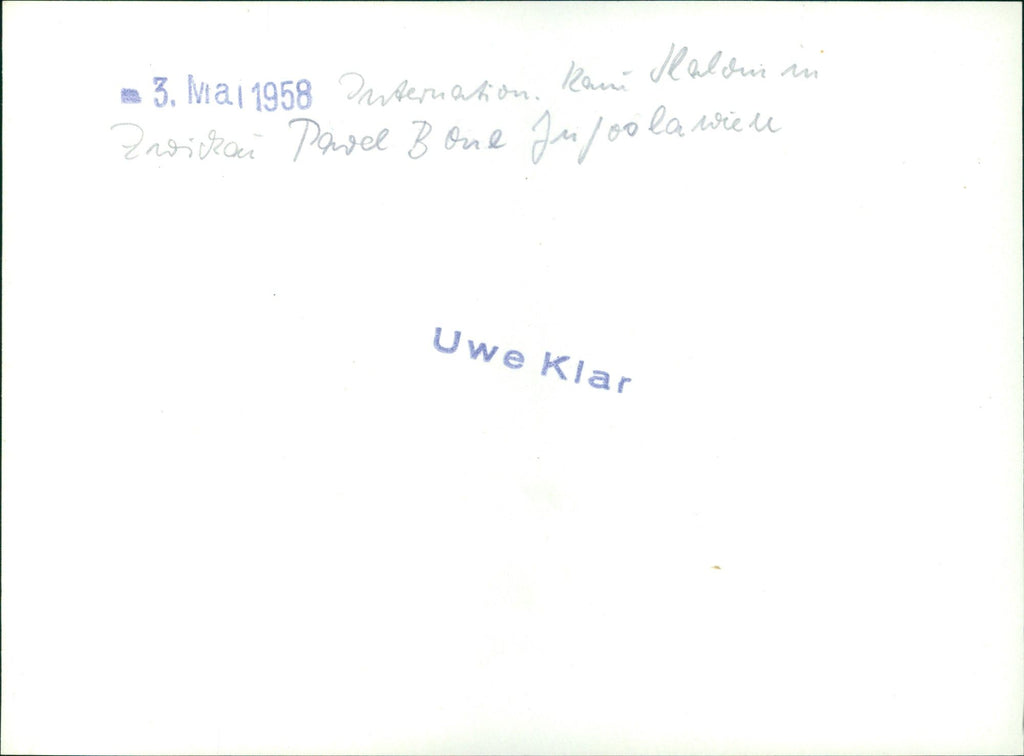 - 3. Mai 1958 Internation. Kanu Slalom in
Zwickau Pavel Bone Jugoslawien
Uwe Klar